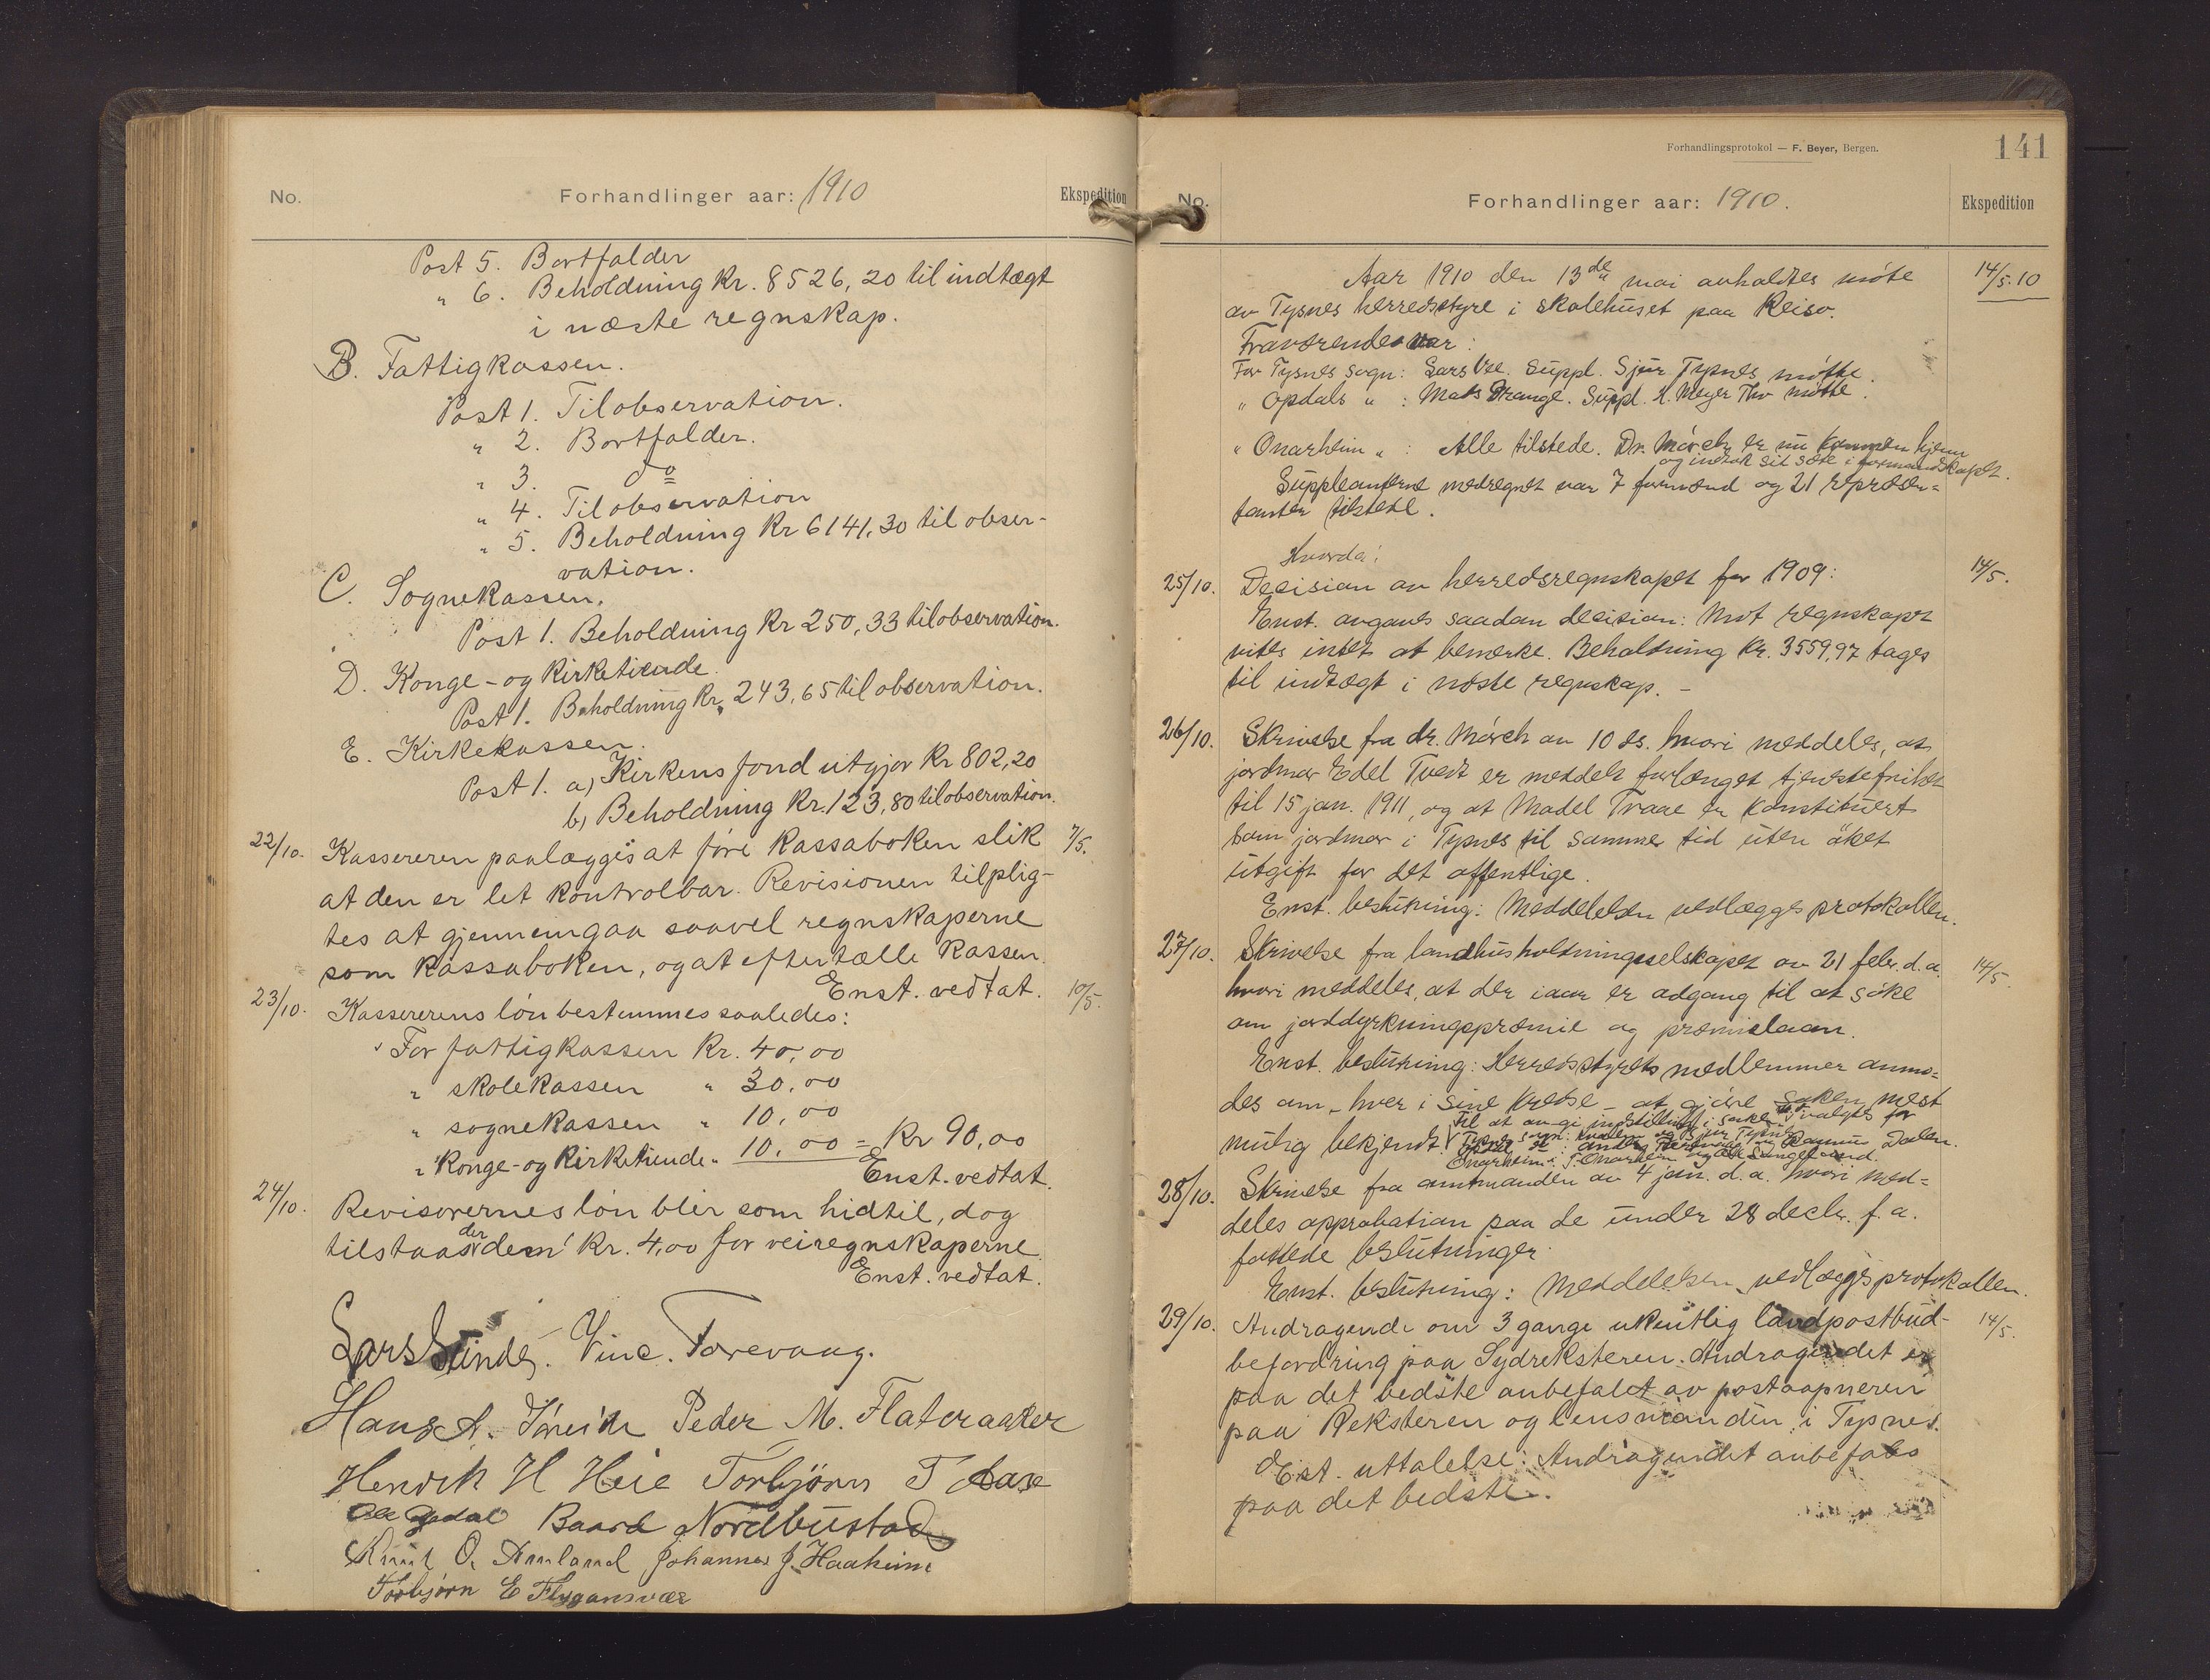 No. Forhandlinger aar: 1910 Ekspedition
Post 5. Bortfalder
" 6. Beholdning Kr. 8526,20 til indtægt
i næste regnskap.
B. Fattigkassen.
Post 1. Til observation.
" 2. Bortfalder.
" 3. do
" 4. Til observation
" 5. Beholdning Kr 6141,30 til obser-
vation.
C. Sognekassen.
Post 1. Beholdning Kr 250,33 til observation.
D. Konge- og Kirketiende.
Post 1. Beholdning Kr. 243,65 til observation.
E. Kirkekassen.
Post 1. a) Kirkens fond utgjør Kr 802,20
b) Beholdning Kr. 123,80 til observation.
22/10. Kassereren paalægges at føre Kassaboken slik 7/5.
at den er let kontrolbar. Revisionen tilplig-
tes at gjennemgaa saavel regnskaperne
som Kassaboken, og at eftertælle Kassen.
Enst. vedtat.
23/10. Kassererens løn bestemmes saaledes: 10/5.
For fattigkassen Kr. 40,00
" skolekassen " 30,00
" sognekassen " 10,00
" Konge- og Kirketiende " 10,00 = Kr 90,00
Enst. vedtat.
24/10. Revisorernes løn blir som hidtil, dog
tilstaaes der dem Kr. 4,00 for veiregnskaperne.
Enst. vedtat.
Lars Sunde. Vinc. Torevaag.
Hans A. Peder M. Flateraaker
Henrik H Heie Torbjörn T Aase
Baard Nordbustad
Knut O. Johannes J. Haaheim
Torbjørn E Flygansvær
Forhandlingsprotokol — F. Beyer, Bergen. 141
No. Forhandlinger aar: 1910. Ekspedition
Aar 1910 den 13de mai avholdtes møte 14/5.10
av Tysnes herredsstyre i skolehuset paa Reiso.
Fraværende var:
For Tysnes sogn: Lars Suppl. Sjur Tysnes møtte.
" Opdals " : Mats Drange. Suppl. møtte.
" Onarheim " : Alle tilstede. Dr. Mörch er nu kommen hjem
og indtok sit sæte i formandskapet.
Suppleanterne medregnet var 7 formænd og 21 repræsen=
tanter tilstede.
Hvorda:
25/10. Decision av herredsregnskapet for 1909: 14/5.
Enst. avgaves saadan decision: Mot regnskapet
vites intet at bemerke. Beholdning Kr. 3559,97 tages
til indtægt i næste regnskap. –
26/10. Skrivelse fra dr. Mörch av 10 ds. hvori meddeles, at
jordmor Edel Tvedt er meddelt forlænget tjenestefrihet
til 15 jan. 1911, og at Madel Traae er konstituert
som jordmor i Tysnes til samme tid uten øket
utgift for det offentlige.
Enst. beslutning: Meddelelsen vedlægges protokollen.
27/10. Skrivelse fra landhusholdningsselskapet av 21 febr. d.a. 14/5.
hvori meddeles, at der iaar er adgang til at søke
om jorddyrkningspræmie og præmielaan.
Enst. beslutning: Herredsstyrets medlemmer anmo=
des om – hver i sine kredse – at gjøre saken mest
mulig bekjendt. Til at avgi indstilling i saken valgtes for
Tysnes sogn: og Sjur Tysnes
Opdal og Rasmus Dalen.
Onarheim: T. Onarheim og
28/10. Skrivelse fra amtmanden av 4 jan. d.a. hvori med=
deles approbation paa de under 28 decbr. f.a.
fattede beslutninger.
Enst. beslutning: Meddelelsen vedlægges protokollen.
29/10. Andragende om 3 gange ukentlig landpostbud- 14/5.
befordring paa Sydreksteren. Andragendet er
paa det bedste anbefalet av postaapneren
paa Reksteren og lensmanden i Tysnes.
Enst. uttalelse: Andragendet anbefales
paa det bedste.